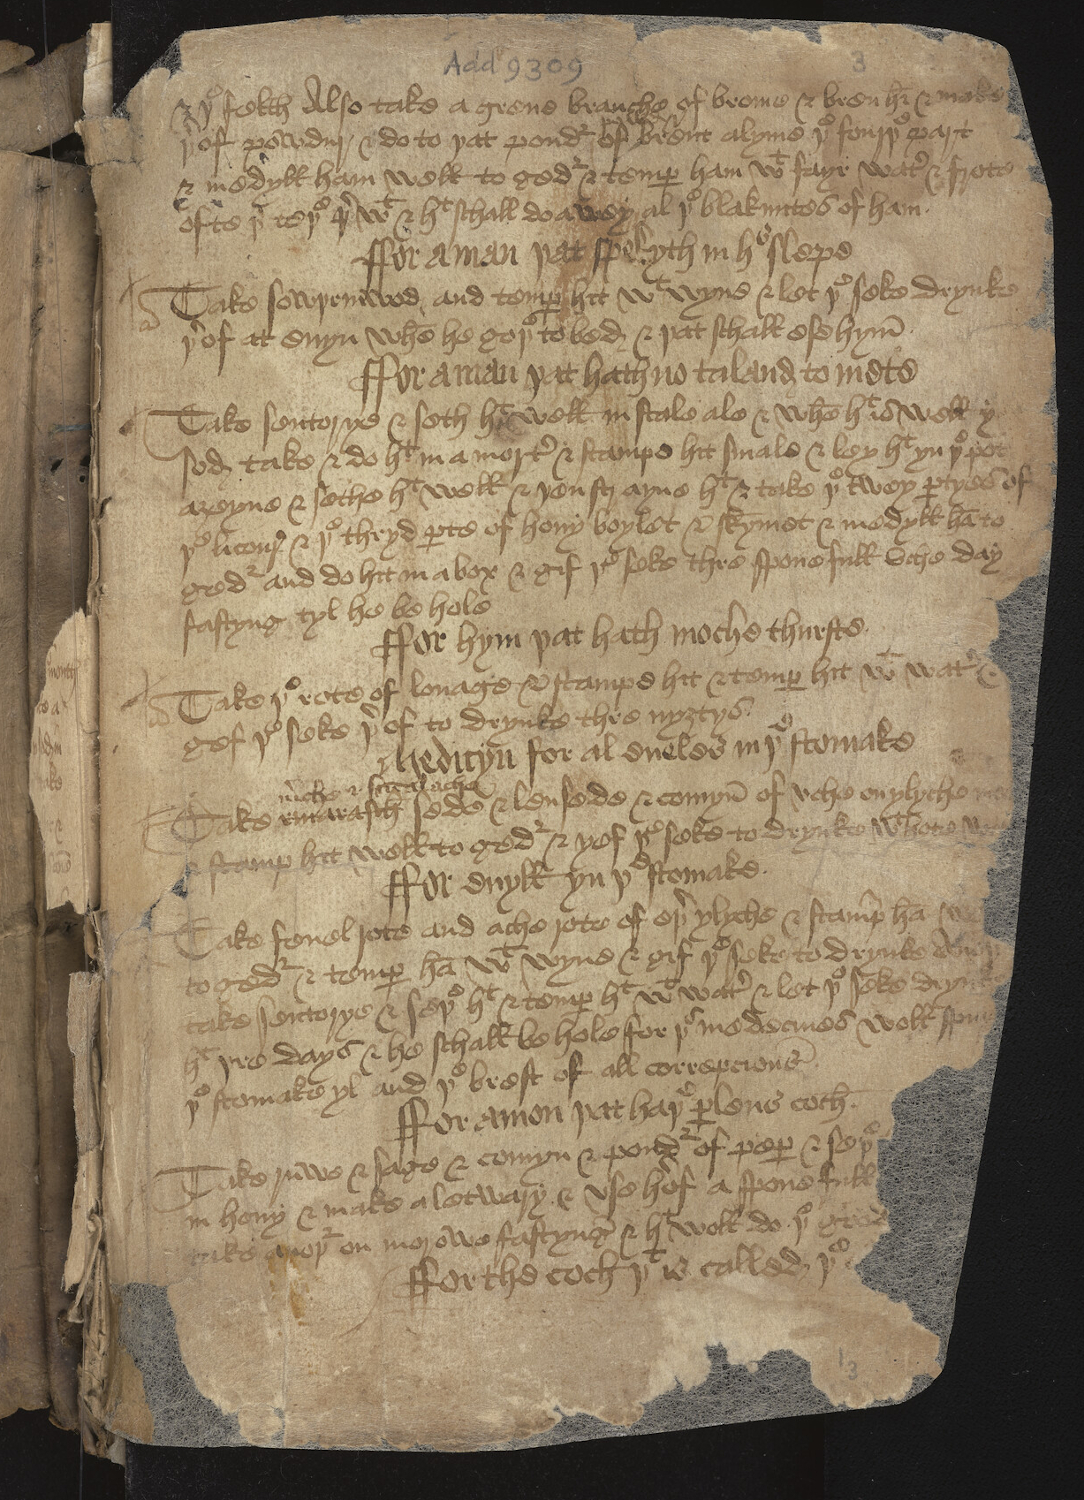 Add 9309
3
& þe felth Also take a grene braunche of brome & bren hit & make
þer of powdur & do to þat poudr of brent alyme þe fourþe part
& medyll ham well to gedr & temper ham wt fayr water & frote
ofte þe teþe þer wt & ht schall do awey al þe blaknites of ham.
ffor a man þat spekyth in hes slepe
Take sowþrnwod and temper hit wt wyne & let þe seke drynke
þer of at euyn whe he goþ to bed & þat schall ese hym
ffor a man þat hath no taland to mete
Take sentorye & seth ht well in stale ale & whe ht is well y
sod take & do ht in a morter & stampe hit smale & ley ht yn þe pot
azeyne & sethe ht well & þen ayne ht & take þe twey partyes of
þe licour & þe thryd parte of hony boylet & skymet & medyll ha to
gedr and do hit in a box & gif þe seke thre spone full eche day
fastyng tyl he be hole
ffor hym þat hath moche thurste
Take þe rote of louage & stampe hit & temper hit wt water &
gef þe seke þer of to drynke thre nyztys
Medicyn for al eueles in þe stomake
Take sede & len sede & comyn of yche on ylyche
& stamp hit well to gedr & yef þe seke to drynke wt hote
ffor euyll yn þe stomake
Take fenel rote and ache rote of eþer ylyche & stamp ha
to gedr & temper ha wt wyne & gif þe seke to drynke
take sentorye & seþe ht & temper ht wt water & let þe seke drynk
ht þre days & he schall be hole for þes medecines well
þe stomake yl and þe brest of all correpcions
ffor a mon þat haþe perlous coth
Take ruwe & sage & comyn & poudr of peper & seþe
in hony & make a letwary & vse þer of a spone full
take anoþr on morowe fastyng & ht well do þe
ffor the coch þt is called þe
13